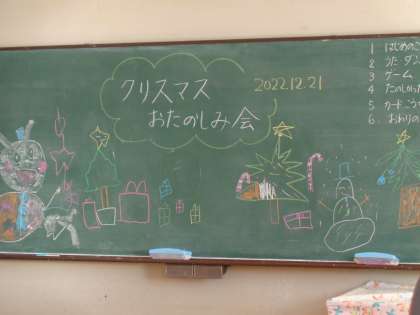 クリスマス
おたのしみ会
2022.12.21
1 はじめのこ
2 うた ダン
3 ゲーム
4 たのしかっ
5 カードこう
6. おわりの